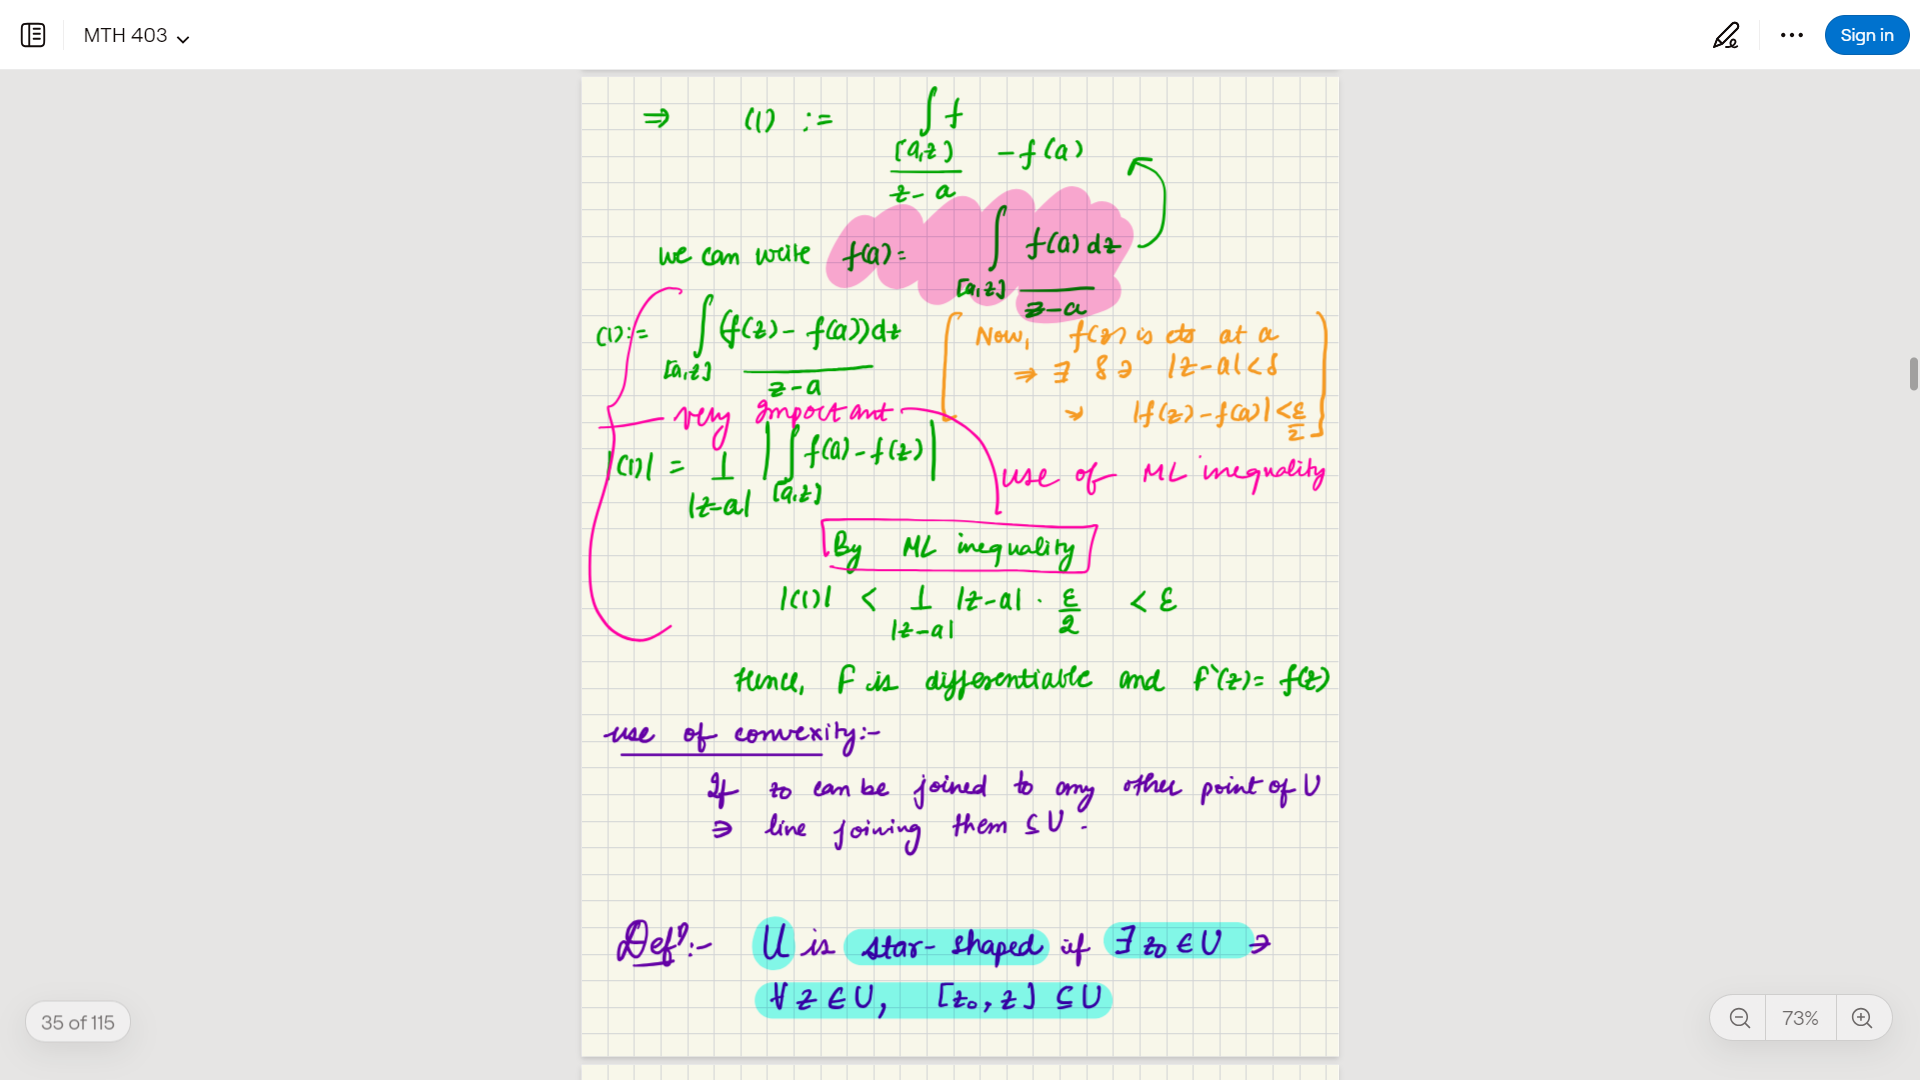 MTH 403
Sign in
⇒ (1) := ∫ f
[a,z] - f(a)
z - a
we can write f(a) = ∫ f(a) dz
[a,z]
z-a
(1) := ∫ (f(z) - f(a)) dz
[a,z]
z-a
[ Now, f(z) is cts at a
⇒ ∃ δ ∋ |z-a| < δ
⇒ |f(z) - f(a)| < ε/2 ]
very important
|(1)| = 1/|z-a| | ∫ f(a) - f(z) |
[a,z]
use of ML inequality
By ML inequality
|(1)| < 1/|z-a| |z-a| · ε/2 < ε
Hence, F is differentiable and F'(z) = f(z)
use of convexity:-
If z0 can be joined to any other point of U
⇒ line joining them ⊆ U.
Defn:- U is star-shaped if ∃ z0 ∈ U ∋
∀ z ∈ U, [z0, z] ⊆ U
35 of 115
73%